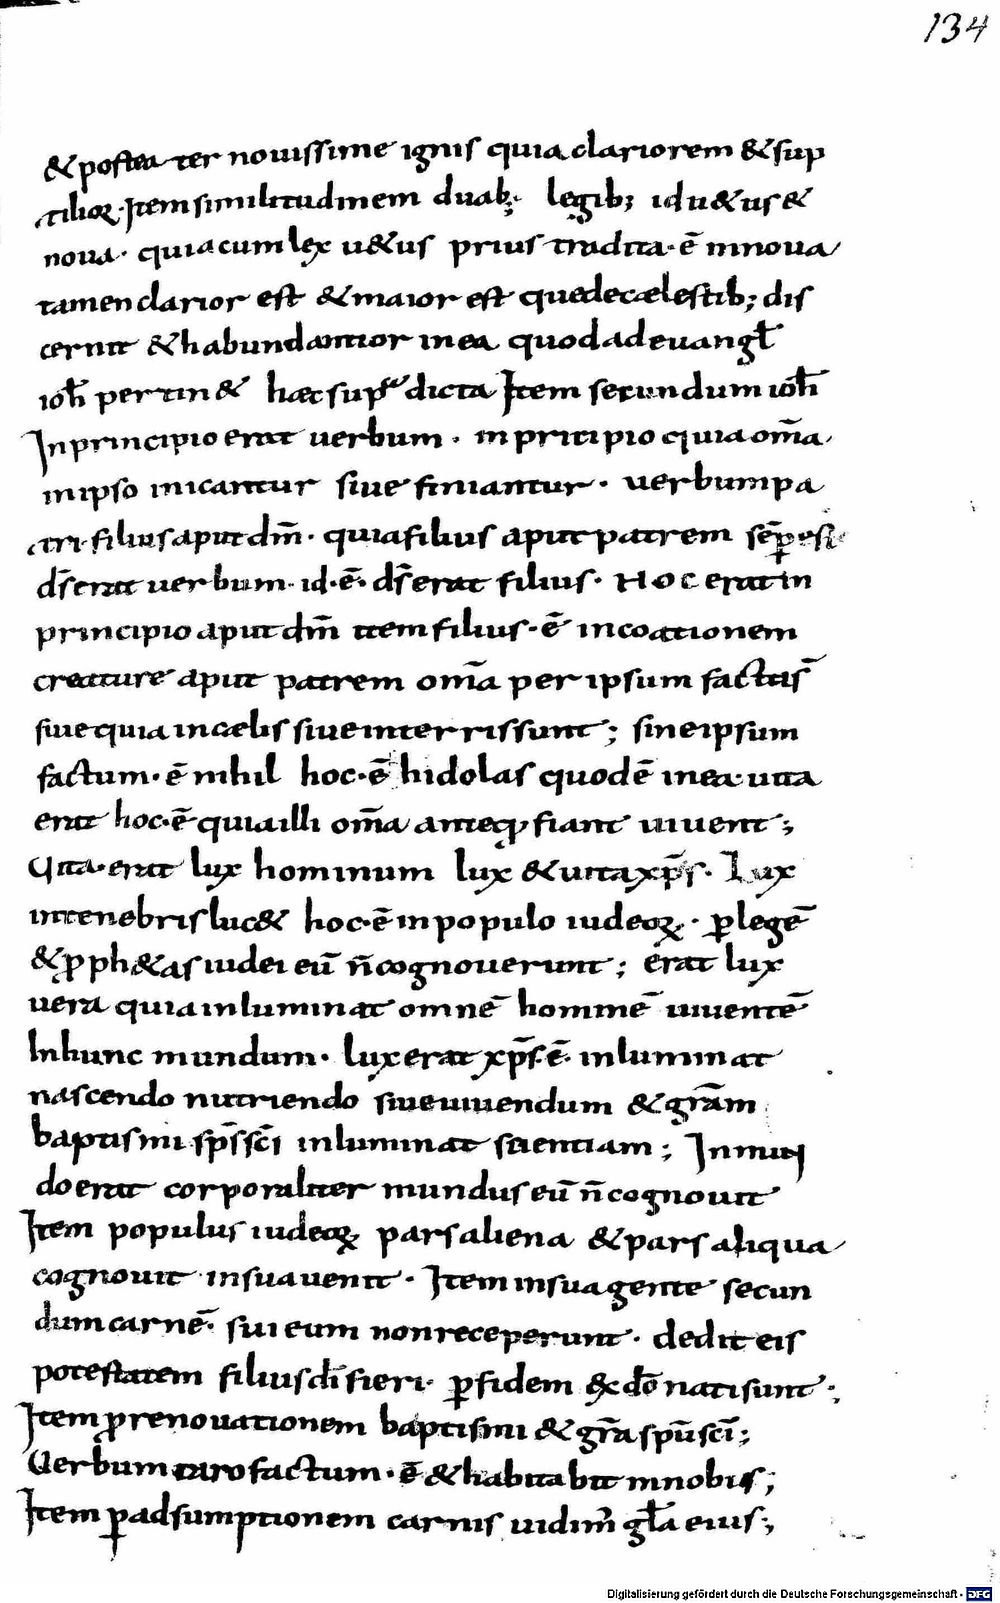 134
& postea ter nouissime ignis quia clariorem & sup
tilioꝝ. Item similitudinem duab; legib; id u&us &
noua. quia cum lex u&us prius tradita. ē in noua
tamen clarior est & maior est que de cælestib; dis
cernit & habundantior in ea quod ad euangł
ioħ pertin& hæc sup͛ dicta Item secundum ioħ
In principio erat uerbum. in pricipio quia om̄a
in ipso inicantur siue finiantur. uerbum pa
tri filius aput dm̄. quia filius aput patrem sēp
ds̄ erat uerbum. id. ē. ds̄ erat filius. Hoc erat in
principio aput dm̄ item filius. ē incoationem
creature aput patrem om̄a per ipsum facta s̄
siue quia in cælis siue in terris sunt; sine ipsum
factum. ē nihil hoc. ē hidolas quod ē in ea uita
erat hoc. ē quia illi om̄a anteq̄ fiant uiuent;
Uita. erat lux hominum lux & uita xp̄s. Lux
in tenebris luc& hoc. ē in populo iudeoꝝ. ꝑ legē
& ꝓph&as iudei eū n̄ cognouerunt; erat lux
uera quia inluminat omnē hominē uiuentē
In hunc mundum. lux erat xp̄s. ē. inluminat
nascendo nutriendo siue uiuendum & grām
baptismi sp̄s sc̄i inluminat scientiam; In mun
do erat corporaliter mundus eū n̄ cognouit
Item populus iudeoꝝ pars aliena & pars aliqua
cognouit in sua uenit. Item in sua gente secun
dum carnē. sui eum non receperunt. dedit eis
potestatem filius dī fieri. ꝑ fidem & ex dō nati sunt;
Item ꝓ renouationem baptismi & grā spū sc̄i;
Uerbum caro factum. ē & habitabit in nobis;
Item ꝑ adsumptionem carnis uidim̄ gła eius;
Digitalisierung gefördert durch die Deutsche Forschungsgemeinschaft - DFG